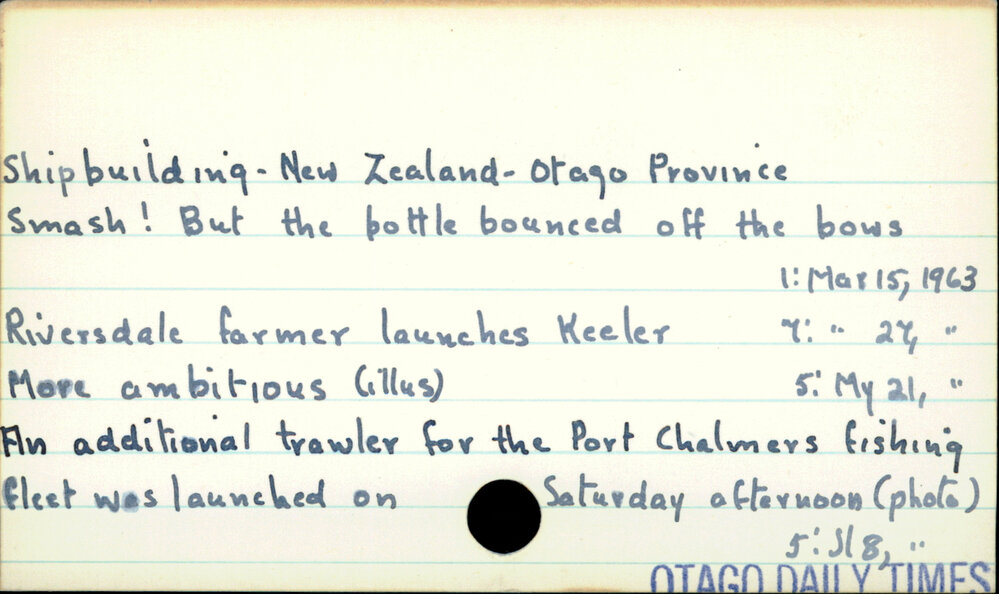 Shipbuilding - New Zealand - Otago Province
Smash! But the bottle bounced off the bows
1: Mar 15, 1963
Riversdale farmer launches Keeler 7: " 27, "
More ambitious (illus) 5: My 21, "
An additional trawler for the Port Chalmers fishing
fleet was launched on Saturday afternoon (photo)
5: Jl 8, "
OTAGO DAILY TIMES